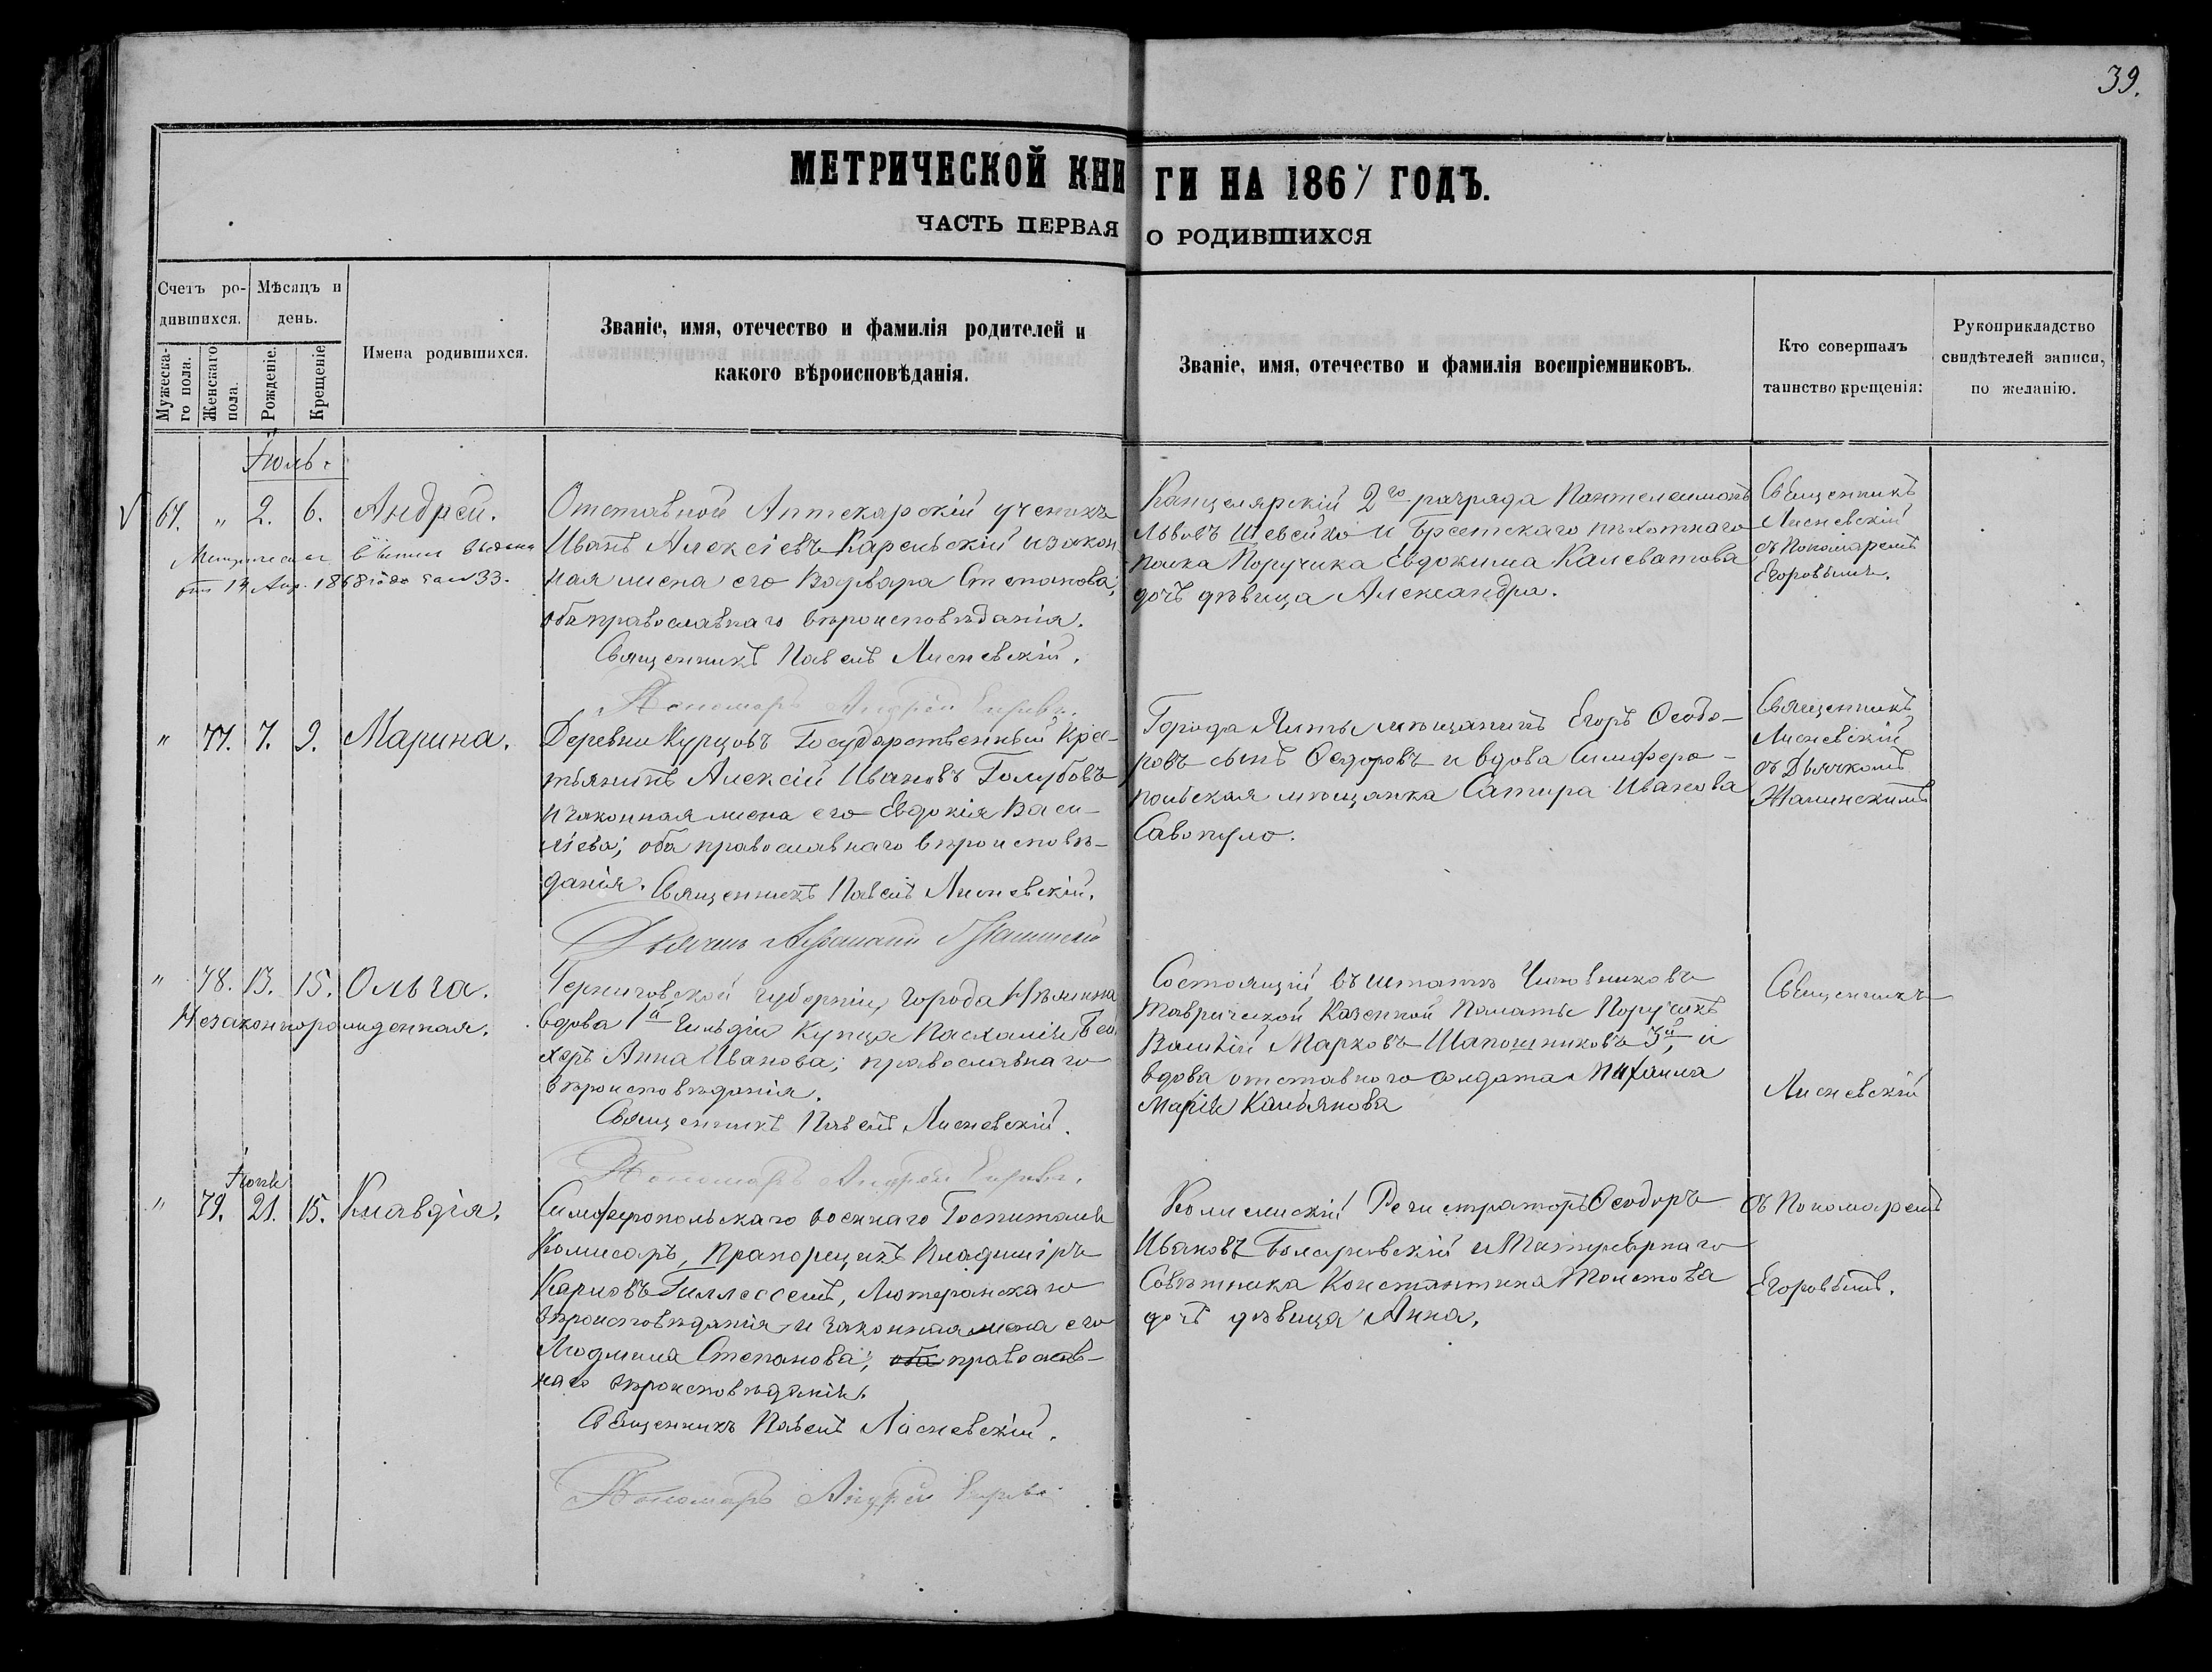 39.
МЕТРИЧЕСКОЙ КНИГИ НА 1867 ГОДЪ.
ЧАСТЬ ПЕРВАЯ О РОДИВШИХСЯ
Счетъ родившихся.
Мужескаго пола.
Женскаго пола.
Мѣсяцъ и день.
Рожденіе.
Крещеніе.
Имена родившихся.
Званіе, имя, отечество и фамилія родителей и
какого вѣроисповѣданія.
Званіе, имя, отечество и фамилія воспріемниковъ.
Кто совершалъ
таинство крещенія:
Рукоприкладство
свидѣтелей записи,
по желанію.
Іюль.
67. " 2. 6. Андрей.
выдана
1868 года за № 33.
Отставной Аптекарскій ученикъ
Иванъ Алексіевъ Карельскій и закон
ная жена его Варвара Степанова;
оба православнаго вѣроисповѣданія.
Священникъ Павелъ Лисневскій.
Пономарь Андрей Егоровъ.
Канцелярскій 2го разряда Пантелеимонъ
Львовъ Шевейко и Брестскаго пѣхотнаго
полка Поручика Евдокима Калеватова
дочь дѣвица Александра.
Священникъ
Лисневскій
съ Пономаремъ
Егоровымъ.
" 77. 7. 9. Марина.
Деревни Курцовъ Государственный Крес-
тьянинъ Алексій Ивановъ Голубовъ
и законная жена его Евдокія Васи-
ліева; оба православнаго вѣроисповѣ-
данія. Священникъ Павелъ Лисневскій.
Дьячекъ
Города Ялты мѣщанинъ Егоръ Ѳеодо-
ровъ сынъ Ѳедоровъ и вдова Симферо-
польская мѣщанка Сатира Иванова
Савопуло.
Священникъ
Лисневскій
съ Дьячкомъ
" 78. 13. 15. Ольга.
Незаконнорожденная.
Черниговской губерніи, города Нѣжина
вдова 1й Гильдіи Купца Пасхалія
Анна Иванова; православнаго
вѣроисповѣданія.
Священникъ Павелъ Лисневскій.
Пономарь Андрей Егоровъ.
Состоящій въ штатѣ Чиновниковъ
Таврической Казенной Палаты Поручикъ
Василій Марковъ Шапошниковъ 3й, и
вдова отставного солдата Михаила
Марія Касьянова
Священникъ
Лисневскій
Іюня
" 79. 21. 15. Клавдія.
Симферопольскаго военнаго Госпиталя
Комисаръ, Прапорщикъ Владиміръ
Карловъ Гиллесемъ, Лютеранскаго
вѣроисповѣданія и законная жена его
Людмила Степанова; оба православ-
наго вѣроисповѣданія.
Священникъ Павелъ Лисневскій.
Пономарь Андрей Егоровъ
Колежскій Регистраторъ Ѳеодоръ
Ивановъ и Титулярнаго
Совѣтника Константина Толстова
дочь дѣвица Анна.
съ Пономаремъ
Егоровымъ.